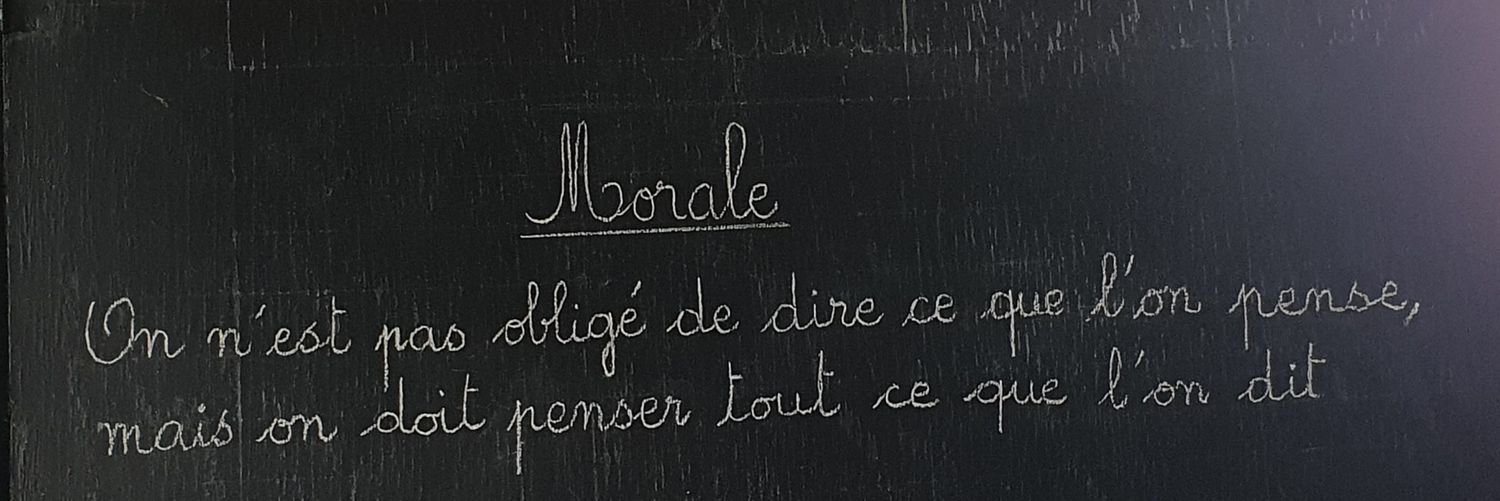 Morale
On n'est pas obligé de dire ce que l'on pense,
mais on doit penser tout ce que l'on dit